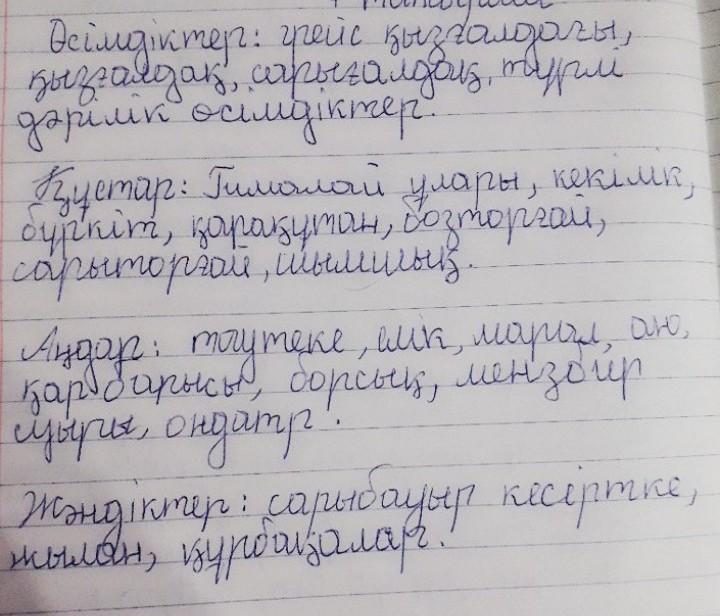 Өсімдіктер: грейс қызғалдағы,
қызғалдақ, сарығалдақ, түрлі
дәрілік өсімдіктер.
Құстар: Гималай ұлары, кекілік,
бүркіт, қарақұтан, бозторғай,
сарыторғай, шымшық.
Аңдар: таутеке, елік, марал, аю,
қар барысы, борсық, мензбир
суыры, ондатр.
Жәндіктер: сарыбауыр кесіртке,
жылан, құрбақалар.